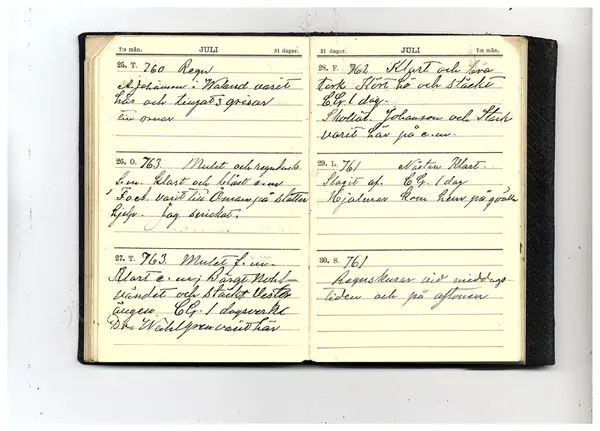 7:e mån. JULI 31 dagar.
25. T. 760 Regn
A. Johanson i Waland varit
här och tingat 3 grisar
till
26. O. 763. Mulet och
f.m. klart och blåst e.m
varit till Öman på slåtter
hjelp. Jag
27. T. 763. Mulet f.m.
Klart e.m.; Bärgt
vändet och stäckt Vester
ängen. C.G. 1 dagsverke
D:r Wahlgren varit här
7:e mån. JULI 31 dagar.
28. F. 762 Klart och bra
tork Kört hö och stäckt
C.G. 1 dag.
Skollär. Johanson och Stark
varit här på e.m.
29. L. 761 Nästan Klart.
Slagit af. C.G. 1 dag
Hjalmar kom hem på qväll
30. S. 761
Regnskurar vid middags
tiden och på aftonen